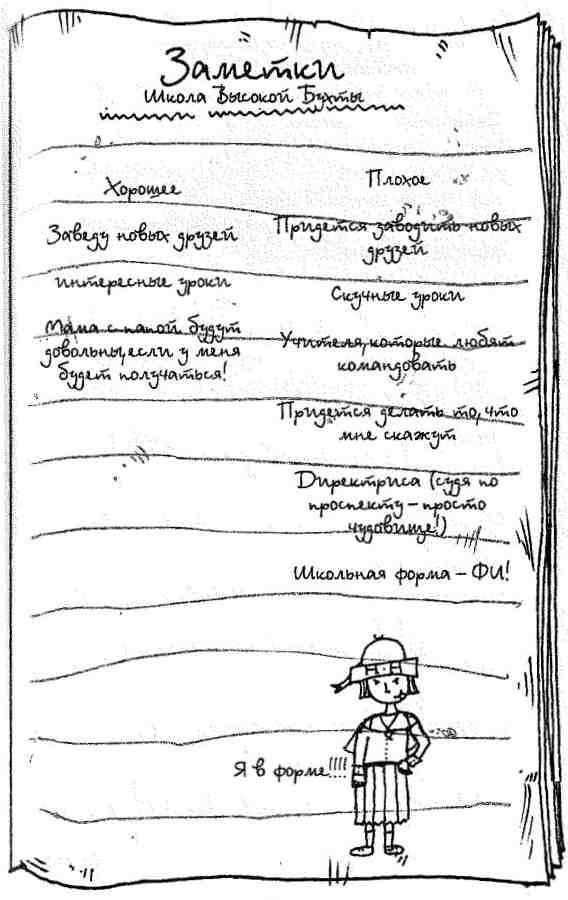 Заметки
Школа Высокой Бухты
Хорошее
Заведу новых друзей
интересные уроки
Мама с папой будут
довольны, если у меня
будет получаться!
Плохое
Придется заводить новых
друзей
Скучные уроки
Учителя, которые любят
командовать
Придется делать то, что
мне скажут
Директриса (судя по
проспекту – просто
чудавище!)
Школьная форма – ФИ!
Я в форме!!!!